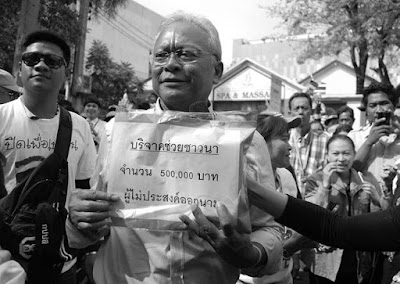 SPA & MASSAGE
ปิดเพื่อ
บริจาคช่วยชาวนา
จำนวน 500,000 บาท
ผู้ไม่ประสงค์ออกนาม